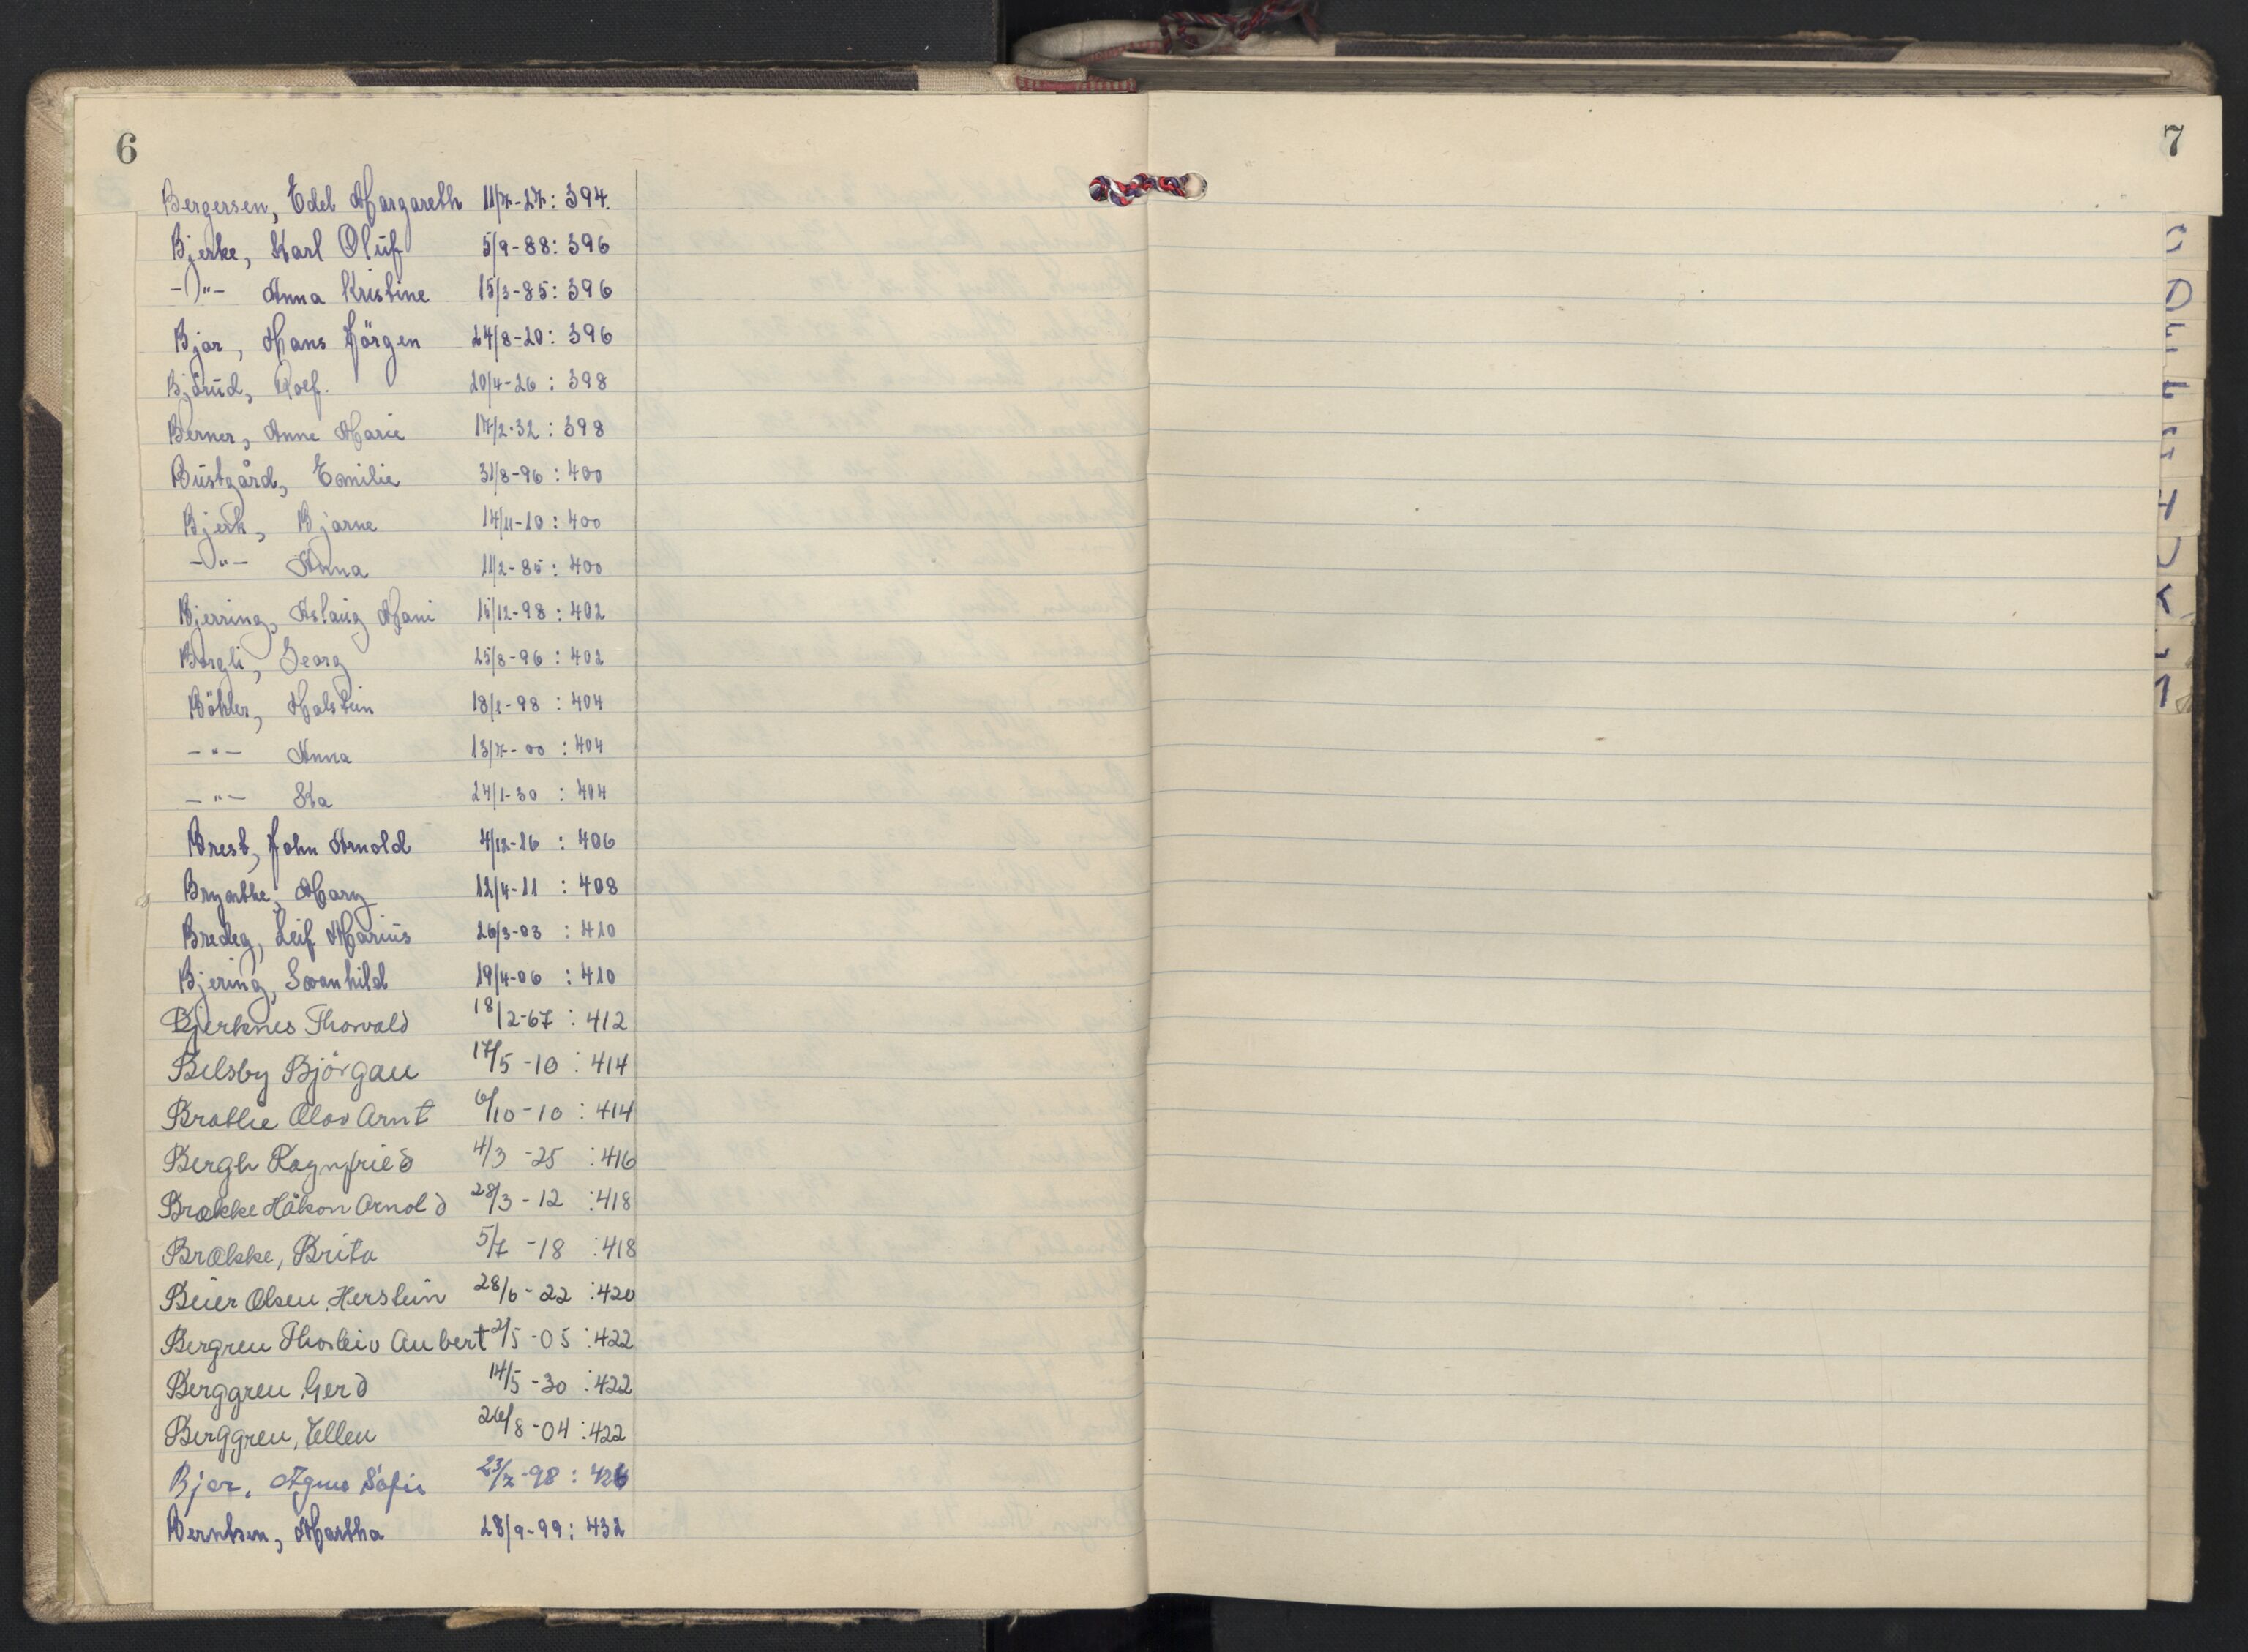 6
Bergersen, Edel Margareth 11/7-27: 394.
Bjerke, Karl Oluf 5/9-88: 396
-"- Anna Kristine 15/3-85: 396
Bjar, Hans Jörgen 24/8-20: 396
Rolf. 20/4-26: 398
Berner, Anne Marie 17/2-32: 398
Bustgård, Emilie 31/8-96: 400
Bjerk, Bjarne 14/11-10: 400
-"- Anna 11/2-85: 400
Bjerring, Aslaug Mari 15/12-98: 402
Bergli, Georg 25/8-96: 402
Böhler, Halstein 18/1-98: 404
-"- Anna 13/7-00: 404
-"- Ka 24/1-30: 404
Brest, John Arnold 4/12-16: 406
Mary 12/4-11: 408
Bredeg, Leif Marius 26/3-03: 410
Bjering, Svanhild 19/4-06: 410
Bjerknes Thorvald 18/2-67: 412
Belsby Björgau 17/5-10: 414
Brathe Olav Arnt 6/10-10: 414
Bergh Ragnfried 4/3-25: 416
Brække Håkon Arnold 28/3-12: 418
Brække, Brita 5/7-18: 418
Beier Olsen, Herstein 28/6-22: 420
Bergren Thorleiv Aubert 2/5-05: 422
Berggren, Gerd 14/5-30: 422
Berggren, Ellen 26/8-04: 422
Bjar, Agnes Sofie 23/7-98: 426
Berntsen, Martha 28/9-99: 432
7
D
E
H
K